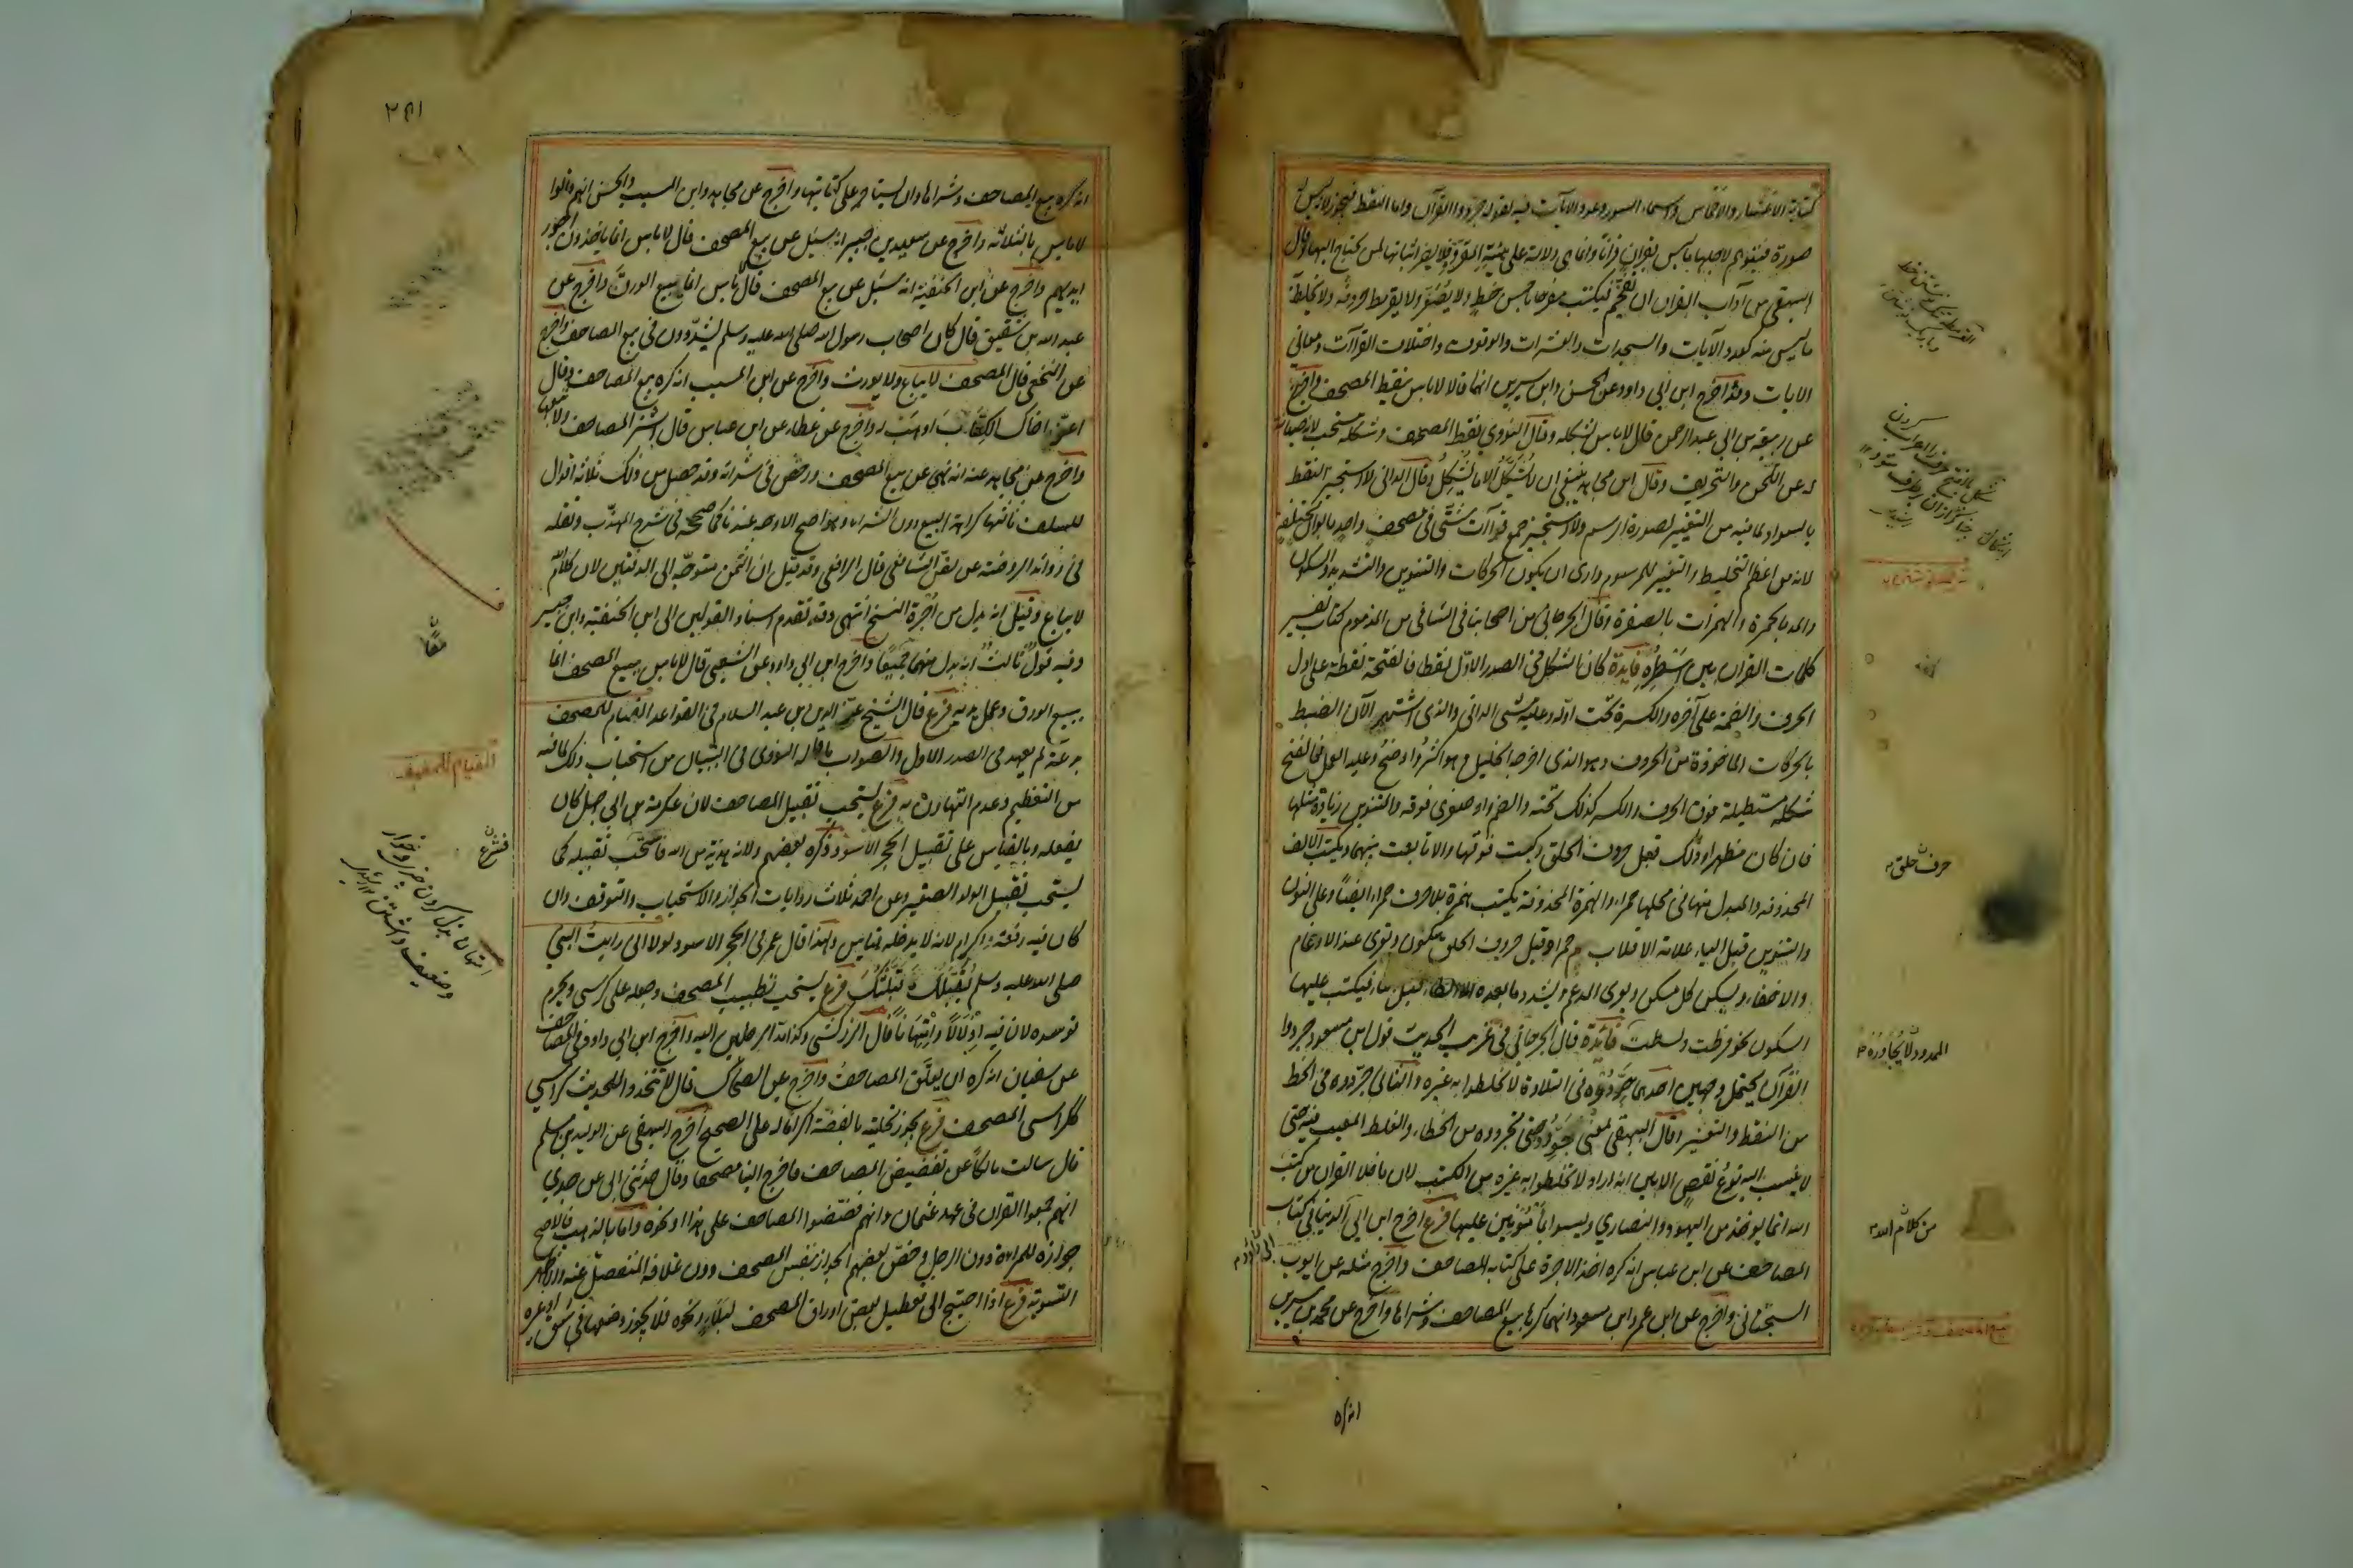 كتابة الاعشار والاخماس واسماء السور وعدد الايات فيه لقوله جردوا القرآن واما النقط فيجوز لانه ليس له
صورة فيتوهم لاجلها ما ليس بقرآن قرآنا وانما هي دلالة على هيئة المقروء فلا يضر اثباتها لمن يحتاج اليها وقال
البيهقي من آداب القرآن ان يفخم فيكتب مفرجا باحسن خط ولا يصغر ولا يقرمط حروفه ولا يخلط به
ما ليس منه كعدد الآيات والسجدات والعشرات والوقوف واختلاف القرآآت ومعاني
الايات وقد اخرج ابن ابي داود عن الحسن وابن سيرين انهما قالا لاباس بنقط المصحف واخرج
عن ربيعة بن ابي عبد الرحمن قال لاباس بشكله وقال النووي نقط المصحف وشكله مستحب لانه صيانة
له عن اللحن والتحريف وقال ابن مجاهد ينبغي ان لا يشكل الا ما يشكل وقال الداني لا استجيز النقط
بالسواد لما فيه من التغيير لصورة الرسم ولا استجيز جمع قرآآت شتى في مصحف واحد بالوان مختلفة
لانه من اعظم التخليط والتغيير للمرسوم وارى ان يكون الحركات والتنوين والتشديد والسكون
والمد بالحمرة والهمزات بالصفرة وقال الجرجاني من اصحابنا في الشافي من المذموم كتابة تفسير
كلمات القرآن بين اسطره فايدة كان الشكل في الصدر الاول نقطا فالفتحة نقطة على اول
الحرف والضمة على آخره والكسرة تحت اوله وعليه مشى الداني والذي اشتهر الآن الضبط
بالحركات الماخوذة من الحروف وهو الذي اخرجه الخليل وهو اكثر واوضح وعليه العمل فالفتح
شكلة مستطيلة فوق الحرف والكسر كذلك تحته والضم واو صغرى فوقه والتنوين زيادة مثلها
فان كان مظهرا وذلك قبل حروف الحلق ركبت فوقها والا تابعت بينهما ويكتب الالف
المحذوفة والمبدل منها في محلها حمراء والهمزة المحذوفة يكتب همزة بلا حرف حمراء ايضا وعلى النون
والتنوين قبل الباء علامة الاقلاب م حمراء وقبل حروف الحلق سكون وتعرى عند الادغام
والاخفاء ويسكن كل مسكن ويعرى المدغم ويشدد ما بعده الا الطاء قبل التاء فيكتب عليها
السكون نحو فرطت وبسطت فايدة قال الحربي في غريب الحديث قول ابن مسعود جردوا
القرآن يحتمل وجهين احدهما جردوه في التلاوة لا تخلطوا به غيره والثاني جردوه في الخط
من النقط والتعشير وقال البيهقي
الله انما يوخذ من اليهود والنصاري وليسوا بمأمونين عليها فرع اخرج ابن ابي في كتاب
المصاحف عن ابن عباس انه كره اخذ الاجرة على كتابة المصاحف واخرج مثله عن ايوب
السختياني واخرج عن ابن عمر وابن مسعود انهما كرها بيع المصاحف وشراءها واخرج عن محمد بن سيرين
حرف حلق
من كلام الله
انه كره
٢٥١
انه كره بيع المصاحف وشراءها وان يستاجر على كتابتها واخرج عن مجاهد وابن المسيب والحسن انهم قالوا
لاباس بالثلاثة واخرج عن سعيد بن جبير انه سئل عن بيع المصحف قال لاباس انما ياخذون اجور
ايديهم واخرج عن ابن الحنفية انه سئل عن بيع المصحف قال لاباس انما يبيع الورق واخرج عن
عبد الله بن شقيق قال كان اصحاب رسول الله صلى الله عليه وسلم يشددون في بيع المصاحف واخرج
عن النخعي قال المصحف لايباع ولا يورث واخرج عن ابن المسيب انه كره بيع المصاحف وقال
اعن اخاك بالكتاب او هب له واخرج عن عطاء عن ابن عباس قال اشتر المصاحف ولا تبعها
واخرج عن مجاهد عنه انه نهى عن بيع المصحف ورخص في شرائه وقد حصل من ذلك ثلاثة اقوال
للسلف ثالثها كراهة البيع دون الشراء وهو اصح الاوجه عندنا كما صححه في شرح المهذب ونقله
في زوائد الروضة عن نص الشافعي قال الرافعي وقد قيل ان الثمن متوجه الى الدفتين لان كلام الله
لايباع وقيل انه بدل من اجرة النسخ انتهى وقد تقدم اسناد القولين الى ابن الحنفية وابن جبير
وفيه قول ثالث انه بدل منهما جميعا واخرج ابن ابي داود عن الشعبي قال لاباس ببيع المصحف انما
يبيع الورق وعمل يديه فرع قال الشيخ عز الدين بن عبد السلام في القواعد القيام للمصحف
بدعة لم يعهد في الصدر الاول والصواب ما قاله النووي في التبيان من استحباب ذلك لما فيه
من التعظيم وعدم التهاون به فرع يستحب تقبيل المصاحف لان عكرمة بن ابي جهل كان
يفعله وبالقياس على تقبيل الحجر الاسود ذكره بعضهم ولانه هدية من الله فاستحب تقبيله كما
يستحب تقبيل الولد الصغير وعن احمد ثلاث روايات الجواز والاستحباب والتوقف وان
كان فيه رفعة واكرام لانه لا يدخله قياس ولهذا قال عمر في الحجر الاسود لولا اني رايت النبي
صلى الله عليه وسلم يقبلك ما قبلتك فرع يستحب تطييب المصحف وجعله على كرسي ويحرم
توسده لان فيه اذلالا وامتهانا قال الزركشي وكذا مد الرجلين اليه واخرج ابن ابي داود في المصاحف
عن سفيان انه كره ان يعلق المصاحف واخرج عن الضحاك قال لا تتخذوا للحديث كراسي
ككراسي المصحف فرع يجوز تحليته بالفضة اكراما له على الصحيح اخرج البيهقي عن الوليد بن مسلم
قال سالت مالكا عن تفضيض المصاحف فاخرج الينا مصحفا وقال حدثني ابي عن جدي
انهم جمعوا القرآن في عهد عثمان وانهم فضضوا المصاحف على هذا او نحوه واما بالذهب فالاصح
جوازه للمراة دون الرجل وخص بعضهم الجواز بنفس المصحف دون غلافه المنفصل عنه والاظهر
التسوية فرع اذا احتيج الى تعطيل بعض اوراق المصحف لبلاء ونحوه فلا يجوز وضعها في شق او غيره
القيام للمصحف